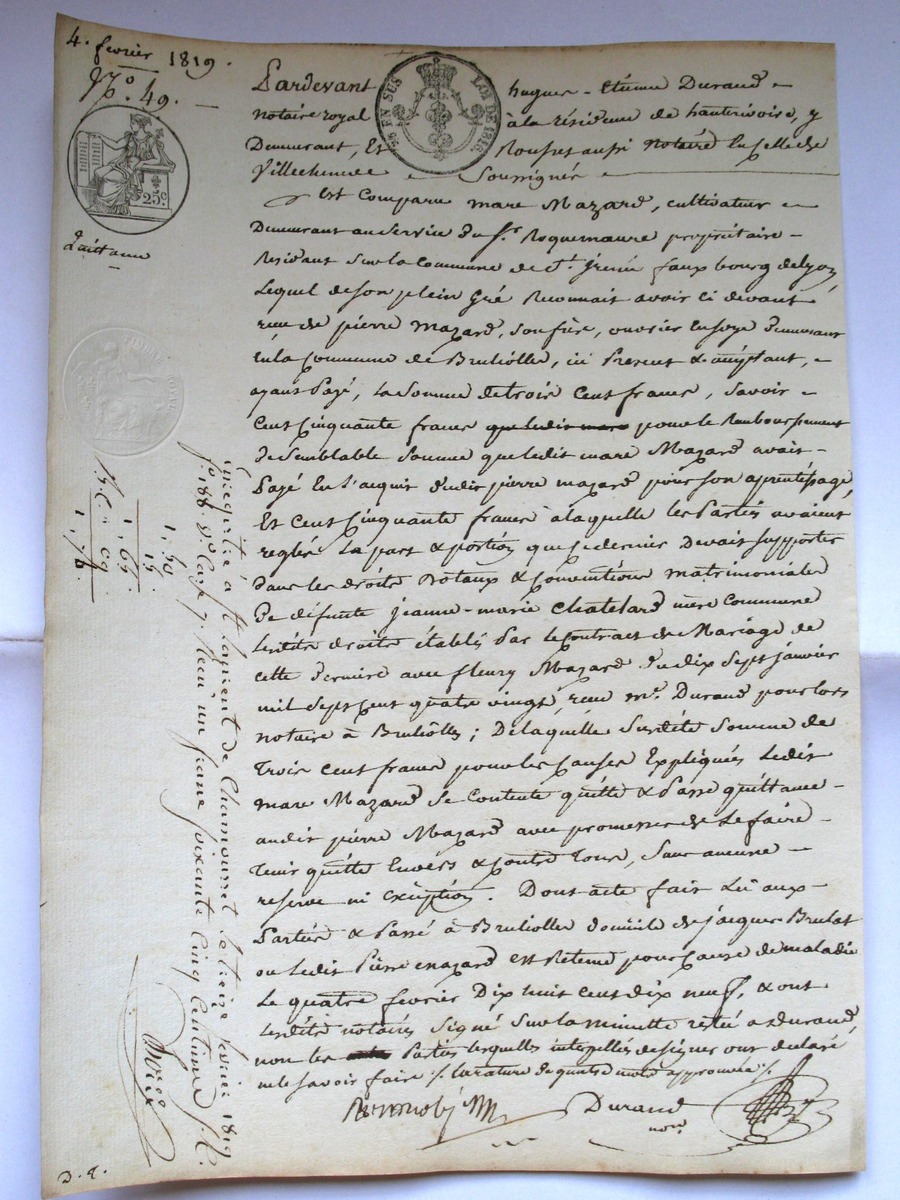 4. fevrier 1819.
N.º 49.
25 EN SUS
LOI DE 1816.
25.C
Quittance
Pardevant hugues-Etienne Durand
notaire royal à la résidence de hauterivoire, y
Demeurant, Et Rousset aussi notaire En celle de
Villechenève Soussignés
Est Comparu marc Mazard, cultivateur
Demeurant au Service du Sr. Roquemaure propriétaire
Résidant Sur la Commune de St. Irénée faux bourg de lyon,
Lequel de Son plein Gré Reconnait avoir ci devant
reçu de pierre Mazard, Son frère, ouvrier En soye Demeurant
En la Commune de Brulliolle, ici Present & acceptant,
ayant Payé, La Somme de trois Cent francs, Savoir
Cent Cinquante francs que ledit marc pour le Remboursement
de Semblable Somme que ledit marc Mazard avait
Payé En l'acquis dudit pierre mazard pour Son apprentissage,
Et Cent Cinquante francs à laquelle les Parties avaient
reglés La part & portion que ce dernier Devait Supporter
Dans les droits Dotaux & Conventions matrimoniales
De défunte jeanne-marie Chatelard mère Commune
Lesdits droits établis Par le Contract de Mariage de
cette derniere avec fleury Mazard du dix Sept janvier
mil Sept Cent quatre vingt, reçu me. Durand pour lors
notaire à Brulliolles; De laquelle Susdite Somme de
Trois Cent francs pour les Causes Expliquées Ledit
marc Mazard Se Contente quitte & Passe quittance
audit pierre Mazard avec promesse de Le faire
Tenir quitte Envers & contre Tous, Sans aucune
reserve ni Exception. Dont acte fait Lu aux
Parties & Passé à Brulliolles domicile de jacques Brulat
ou Ledit Pierre mazard est Retenu pour Cause de maladie
Le quatre fevrier Dix huit cent dix neuf, & ont
Lesdits notaires Signé Sur la minutte restée a Durand
non les Parties lesquelles interpellés de Signer ont declaré
ne le Savoir faire ./. La rature de quatre mots approuvée ./.
Durand
nore.
Enregistré à St. Laurent de Chamousset le treize fevrier 1819.
fo. 188 Reçu un franc soixante cinq centimes
1, 50
15
1, 65.
09
1, 74.
D. q.